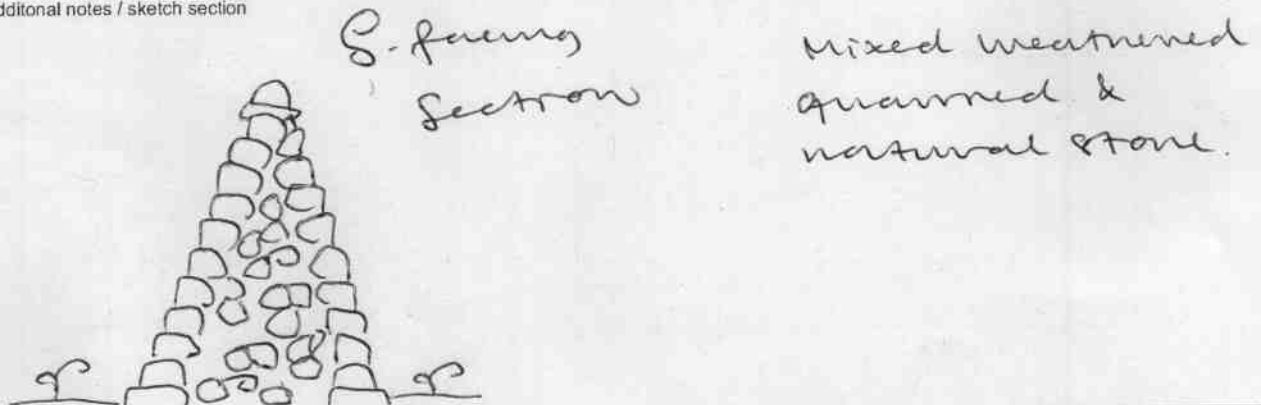 dditonal notes / sketch section
S. facing
Section
Mixed weathered
quarried &
natural stone.